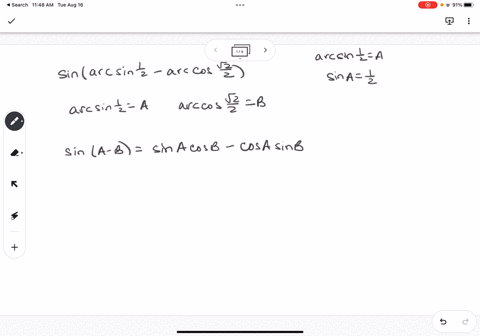 Search 11:48 AM Tue Aug 16
91%
1 / 6
sin(arcsin 1/2 − arccos √2/2)
arcsin 1/2 = A
sin A = 1/2
arcsin 1/2 = A arccos √2/2 = B
sin (A-B) = sin A cos B − cos A sin B